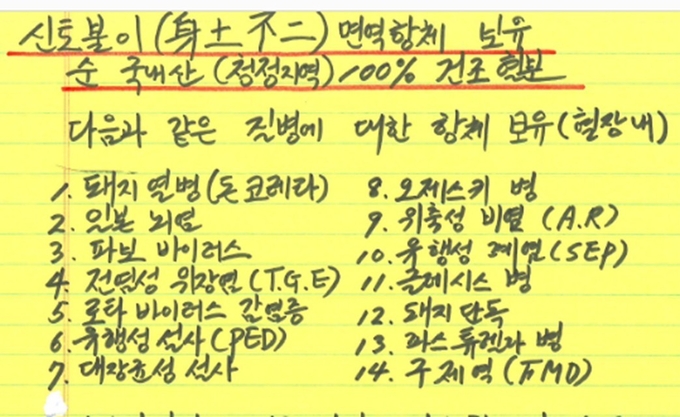 신토불이(身土不二) 면역항체 보유
순 국내산 (청정지역) 100% 건조 혈분
다음과 같은 질병에 대한 항체 보유(혈장내)
1. 돼지 열병(돈 코레라)
2. 일본 뇌염
3. 파보 바이러스
4. 전염성 위장염(T.G.E)
5. 로타 바이러스 감염증
6. 유행성 설사(PED)
7. 대장균성 설사
8. 오제스키 병
9. 위축성 비염 (A.R)
10. 유행성 폐렴(SEP)
11. 글레시스 병
12. 돼지 단독
13. 파스튜렐라 병
14. 구제역 (FMD)